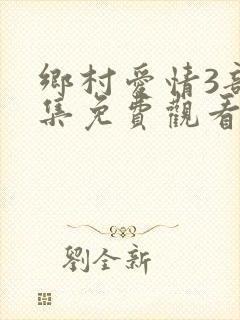 鄉村愛情3部
集免費觀看
劉全新